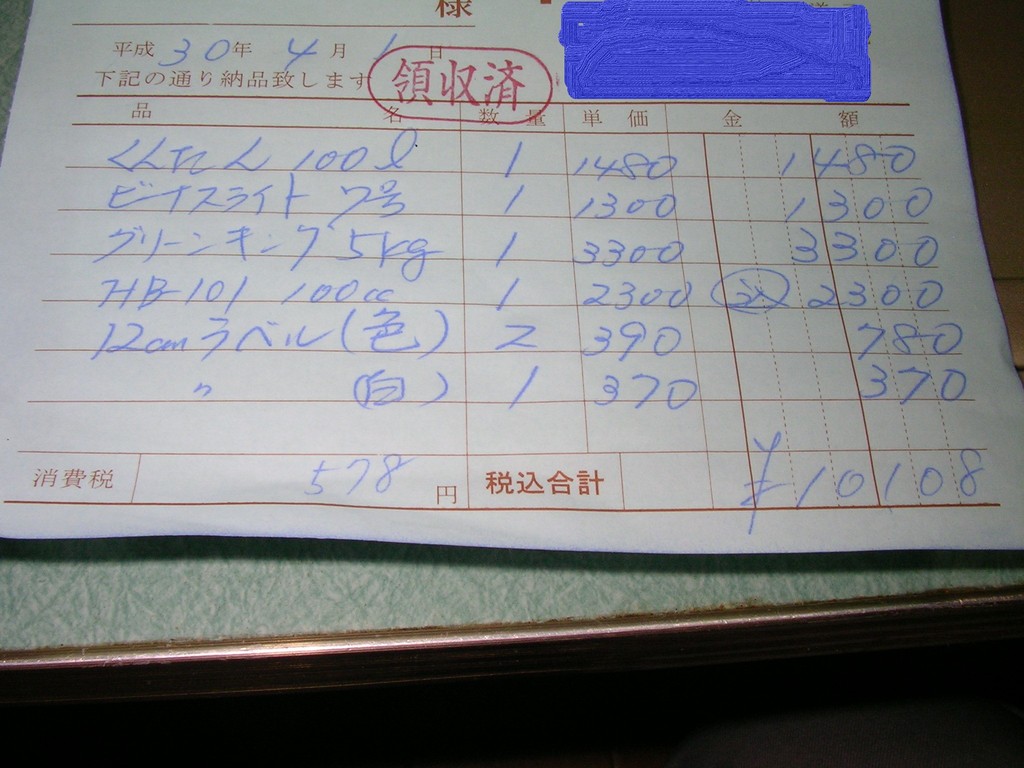 様
平成 30年 4月 1日
下記の通り納品致します
領収済
品名 数量 単価 金額
くんたん 100ℓ 1 1480 1480
ビーナスライト 7号 1 1300 1300
グリーンキング 5kg 1 3300 3300
HB-101 100cc 1 2300 込 2300
12cmラベル(色) 2 390 780
〃 (白) 1 370 370
消費税 578円 税込合計 ¥10108